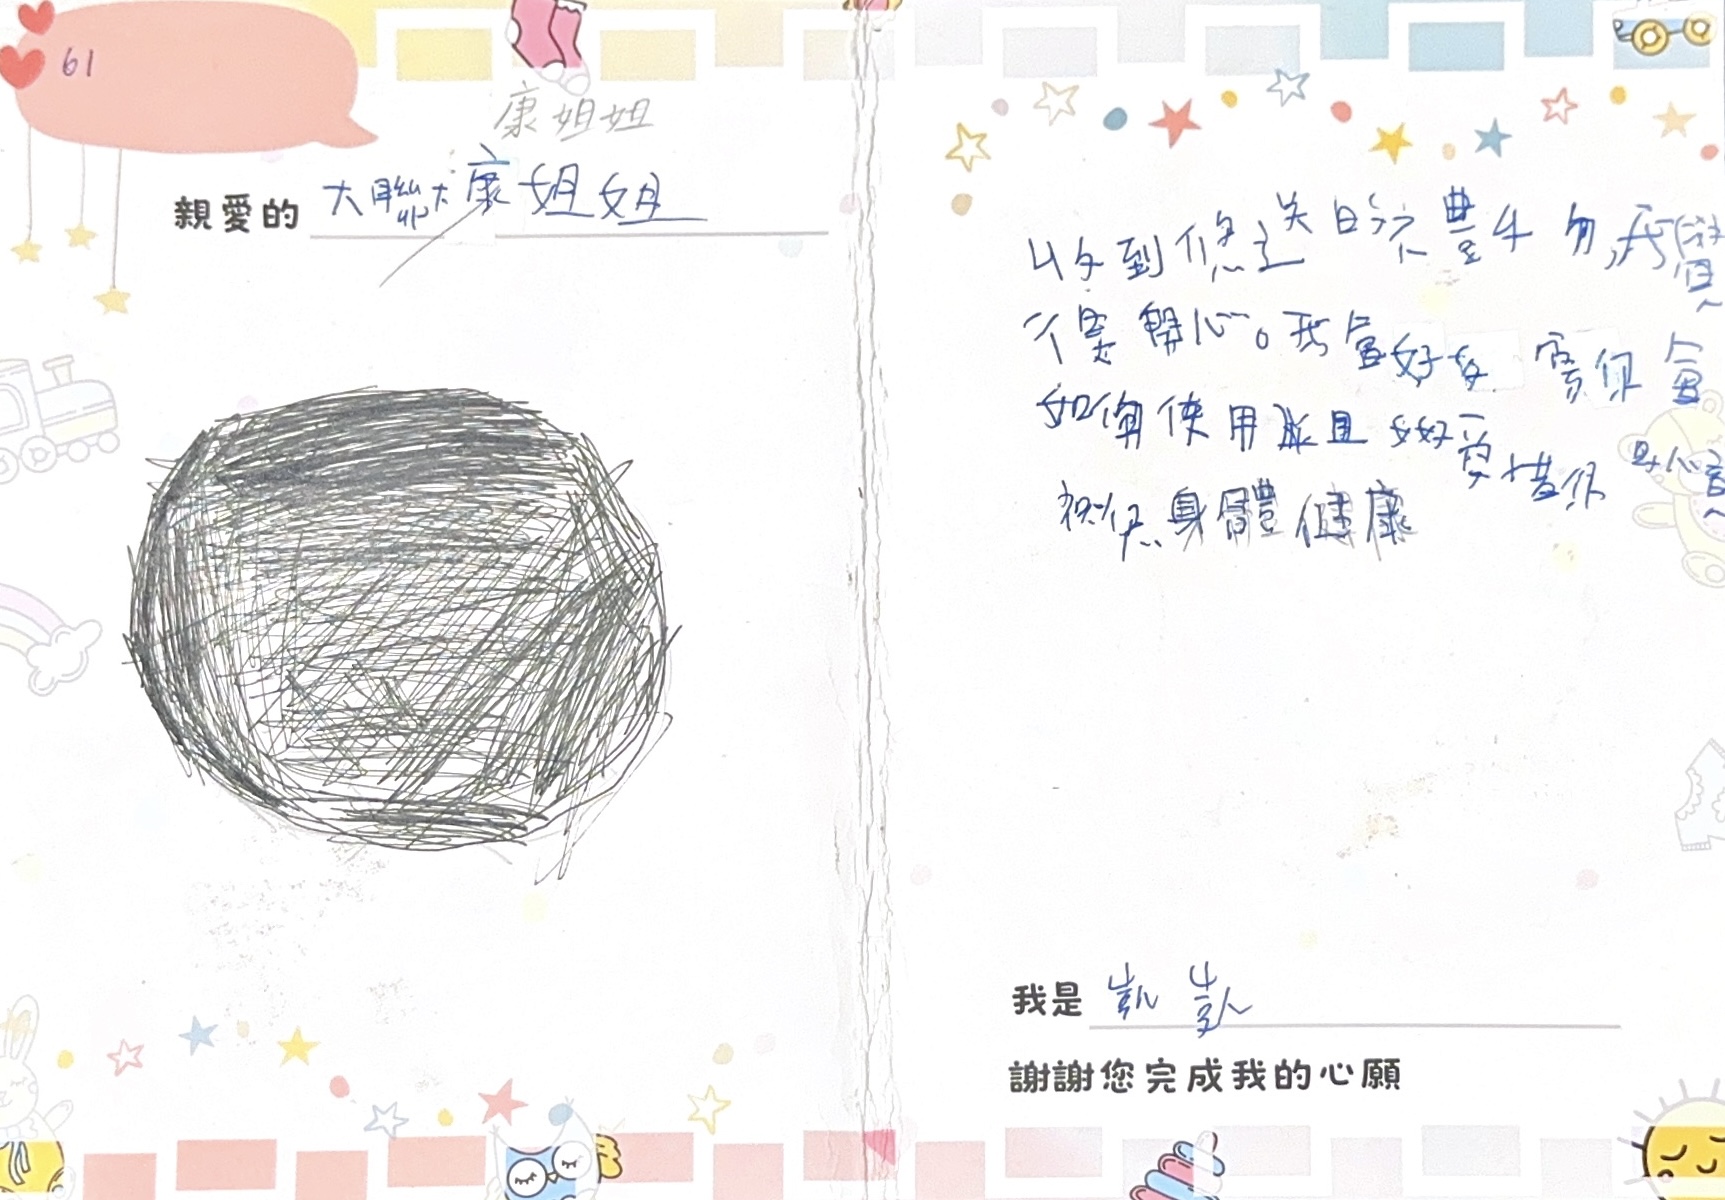 61
康姐姐
親愛的 大聯大康姐姐
收到您送的禮物,我覺
得很開心。我會好好
如何使用並且好好愛惜你的心意
祝您身體健康
我是 凱凱
謝謝您完成我的心願